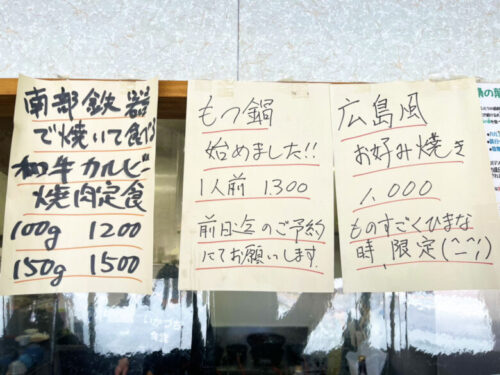 南部鉄器
で焼いて食べる
和牛カルビー
焼肉定食
100g 1200
150g 1500
もつ鍋
始めました!!
1人前 1.300
前日迄のご予約
にてお願いします.
広島風
お好み焼き
1.000
ものすごくひまな
時 限定(^_^;)